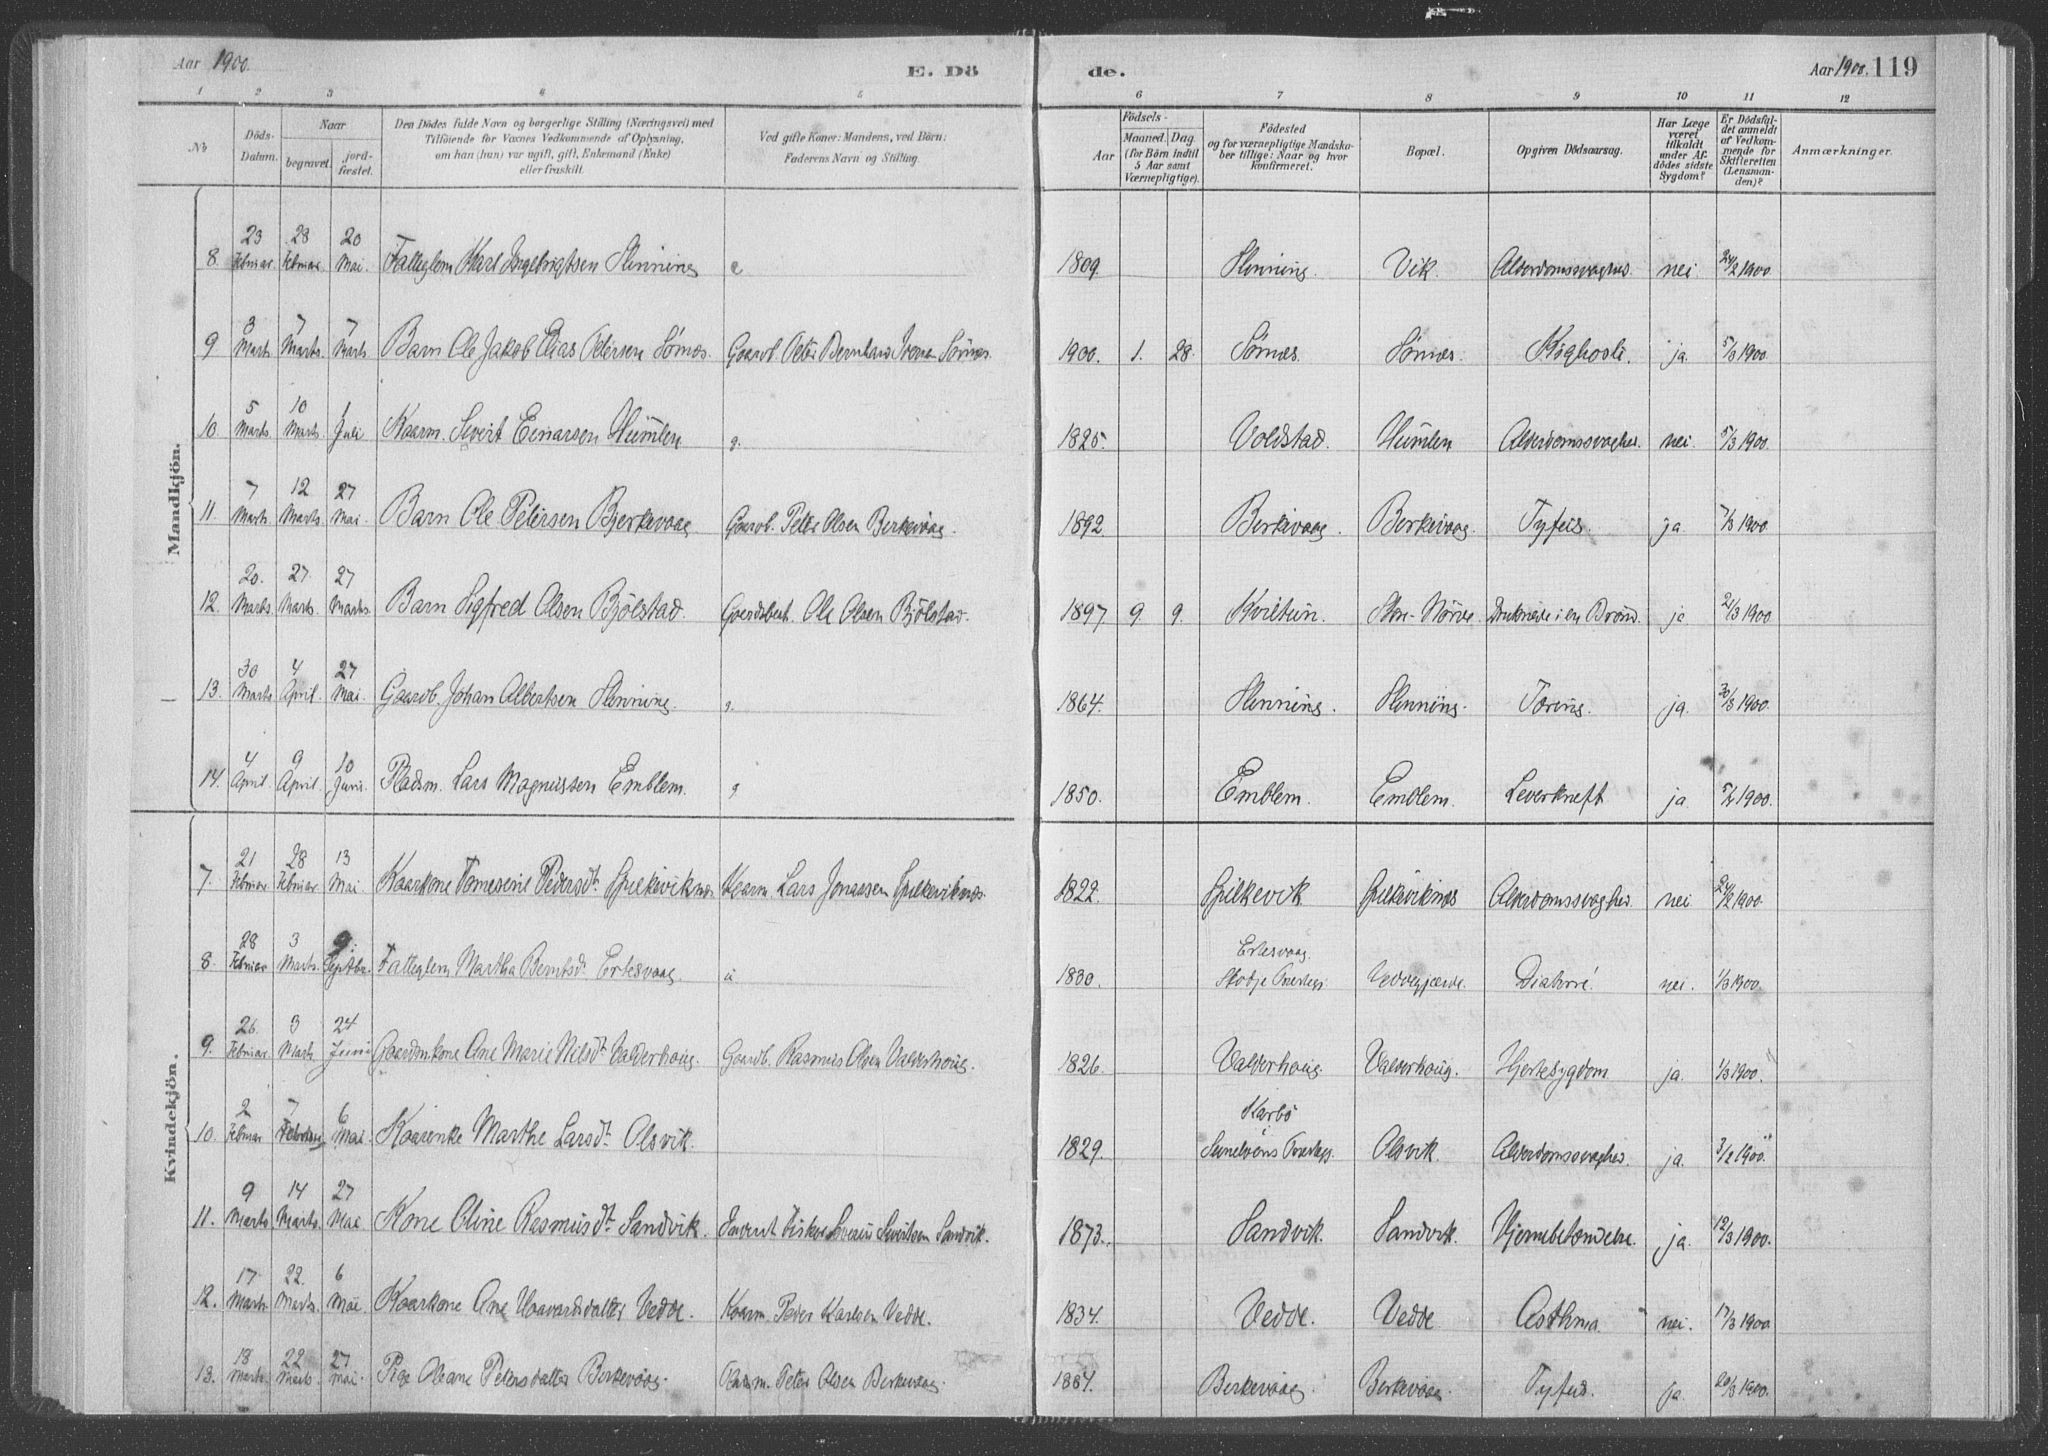 Aar 1900.
E. Dö
de.
Aar 1900. 119
1 2 3 4 5 6 7 8 9 10 11 12
No
Döds-
Datum.
Naar
begravet.
jord-
fæstet.
Den Dödes fulde Navn og borgerlige Stilling (Næringsvei) med
Tilföiende for Voxnes Vedkommende af Oplysning,
om han (hun) var ugift, gift, Enkemand (Enke)
eller fraskilt.
Ved gifte Koner: Mandens, ved Börn:
Faderens Navn og Stilling.
Födsels-
Aar
Maaned. Dag.
(for Börn indtil
5 Aar samt
Værnepligtige).
Födested
og for værnepligtige Mandska-
ber tillige: Naar og hvor
konfirmeret.
Bopæl.
Opgiven Dödsaarsag.
Har Læge
været
tilkaldt
under Af-
dödes sidste
Sygdom?
Er Dödsfal-
det anmeldt
af Vedkom-
mende for
Skifteretten
(Lensman-
den)?
Anmærkninger.
Mandkjön.
8. 23 Februar. 28 Februar 20 Mai. Fatteglem Karl Ingebrigtsen Slinning e 1809. Slinning. Vik. Alderdomssvaghed. nei 24/2 1900
9 3 Marts 7 Marts. 7 Marts Barn Ole Jakob Elias Petersen Sørnæs. Gaardb. Peter Bernhard Sørnæs. 1900. 1. 28. Sørnæs. Sørnæs. Kighoste. ja. 5/3 1900.
10. 5 Marts. 10 Marts. 1 Juli Kaarm. Sivert Einarsen Humlen g. 1825. Voldstad. Humlen Alderdomssvaghed. nei. 5/3 1900.
11. 7 Marts 12 Marts 27 Mai. Barn Ole Petersen Bjerkevaag Gaardb. Peter Olsen Berkevaag. 1892. Berkevaag. Berkevaag. Tyfus. ja. 7/3 1900.
12. 20. Marts. 27. Marts. 27 Marts. Barn Sigfred Olsen Bjölstad. Ole Olsen Bjölstad. 1897 9. 9. Kviltun. Nörve. Druknede i en Brönd. ja 21/3 1900
13. 30 Marts 4 April. 27 Mai. Gaardb. Johan Albertsen Slinning. g. 1864. Slinning. Slinning. Tæring. ja. 30/3 1900.
14. 4 April. 9 April. 10 Juni. Pladsm. Lars Magnussen Emblem. g 1850. Emblem. Emblem. Leverkreft ja 1900.
Kvindekjön.
7. 21 Februar 28 Februar 13 Mai Kaarkone Tomesine Pedersdt. Spilkeviknæs Kaarm. Lars Jonassen Spilkeviknæs. 1822. Spilkevik. Spilkeviknæs Alderdomssvaghed. nei 24/2 1900.
8. 28 Februar 3 Marts. 9. Septbr. Fatteglem Martha Berntsdt. Ertesvaag u 1830. Ertesvaag. Stodje Præstegj. Veddegjærde. Diahrré. nei. 1/3 1900.
9. 26. Februar 3 Marts. 24 Juni Gaardmkone Ane Marie Nilsdt. Valderhoug. Gaardb. Rasmus Olsen Valderhoug. 1826. Valderhoug. Valderhoug. Hjertesygdom ja. 1/3 1900.
10. 2 Februar 7 Februar 6 Mai Kaarenke Marthe Larsdt. Olsvik. 1829. Karbö Sunelvens Præstegj. Olsvik. Alderdomssvaghed. ja. 3/2 1900.
11. 9 Marts 14 Marts. 27 Mai Kone Oline Rasmusdt. Sandvik. Inderst Fisker Severin Sivertsen Sandvik. 1873. Sandvik. Sandvik. Hjernebetændelse. ja. 12/3 1900.
12. 17 Marts. 22. Marts. 6 Mai Kaarkone Ane Haavardsdatter Vedde. Kaarm. Peder Karlsen Vedde. 1834. Vedde. Vedde Asthma. nei. 17/3 1900
13. 18 Marts. 22 Marts. 27 Mai. Pige Oleane Petersdatter Berkevaag. Peter Olsen Berkevaag. 1884. Berkevaag. Berkevaag. Tyfus. ja. 20/3 1900.